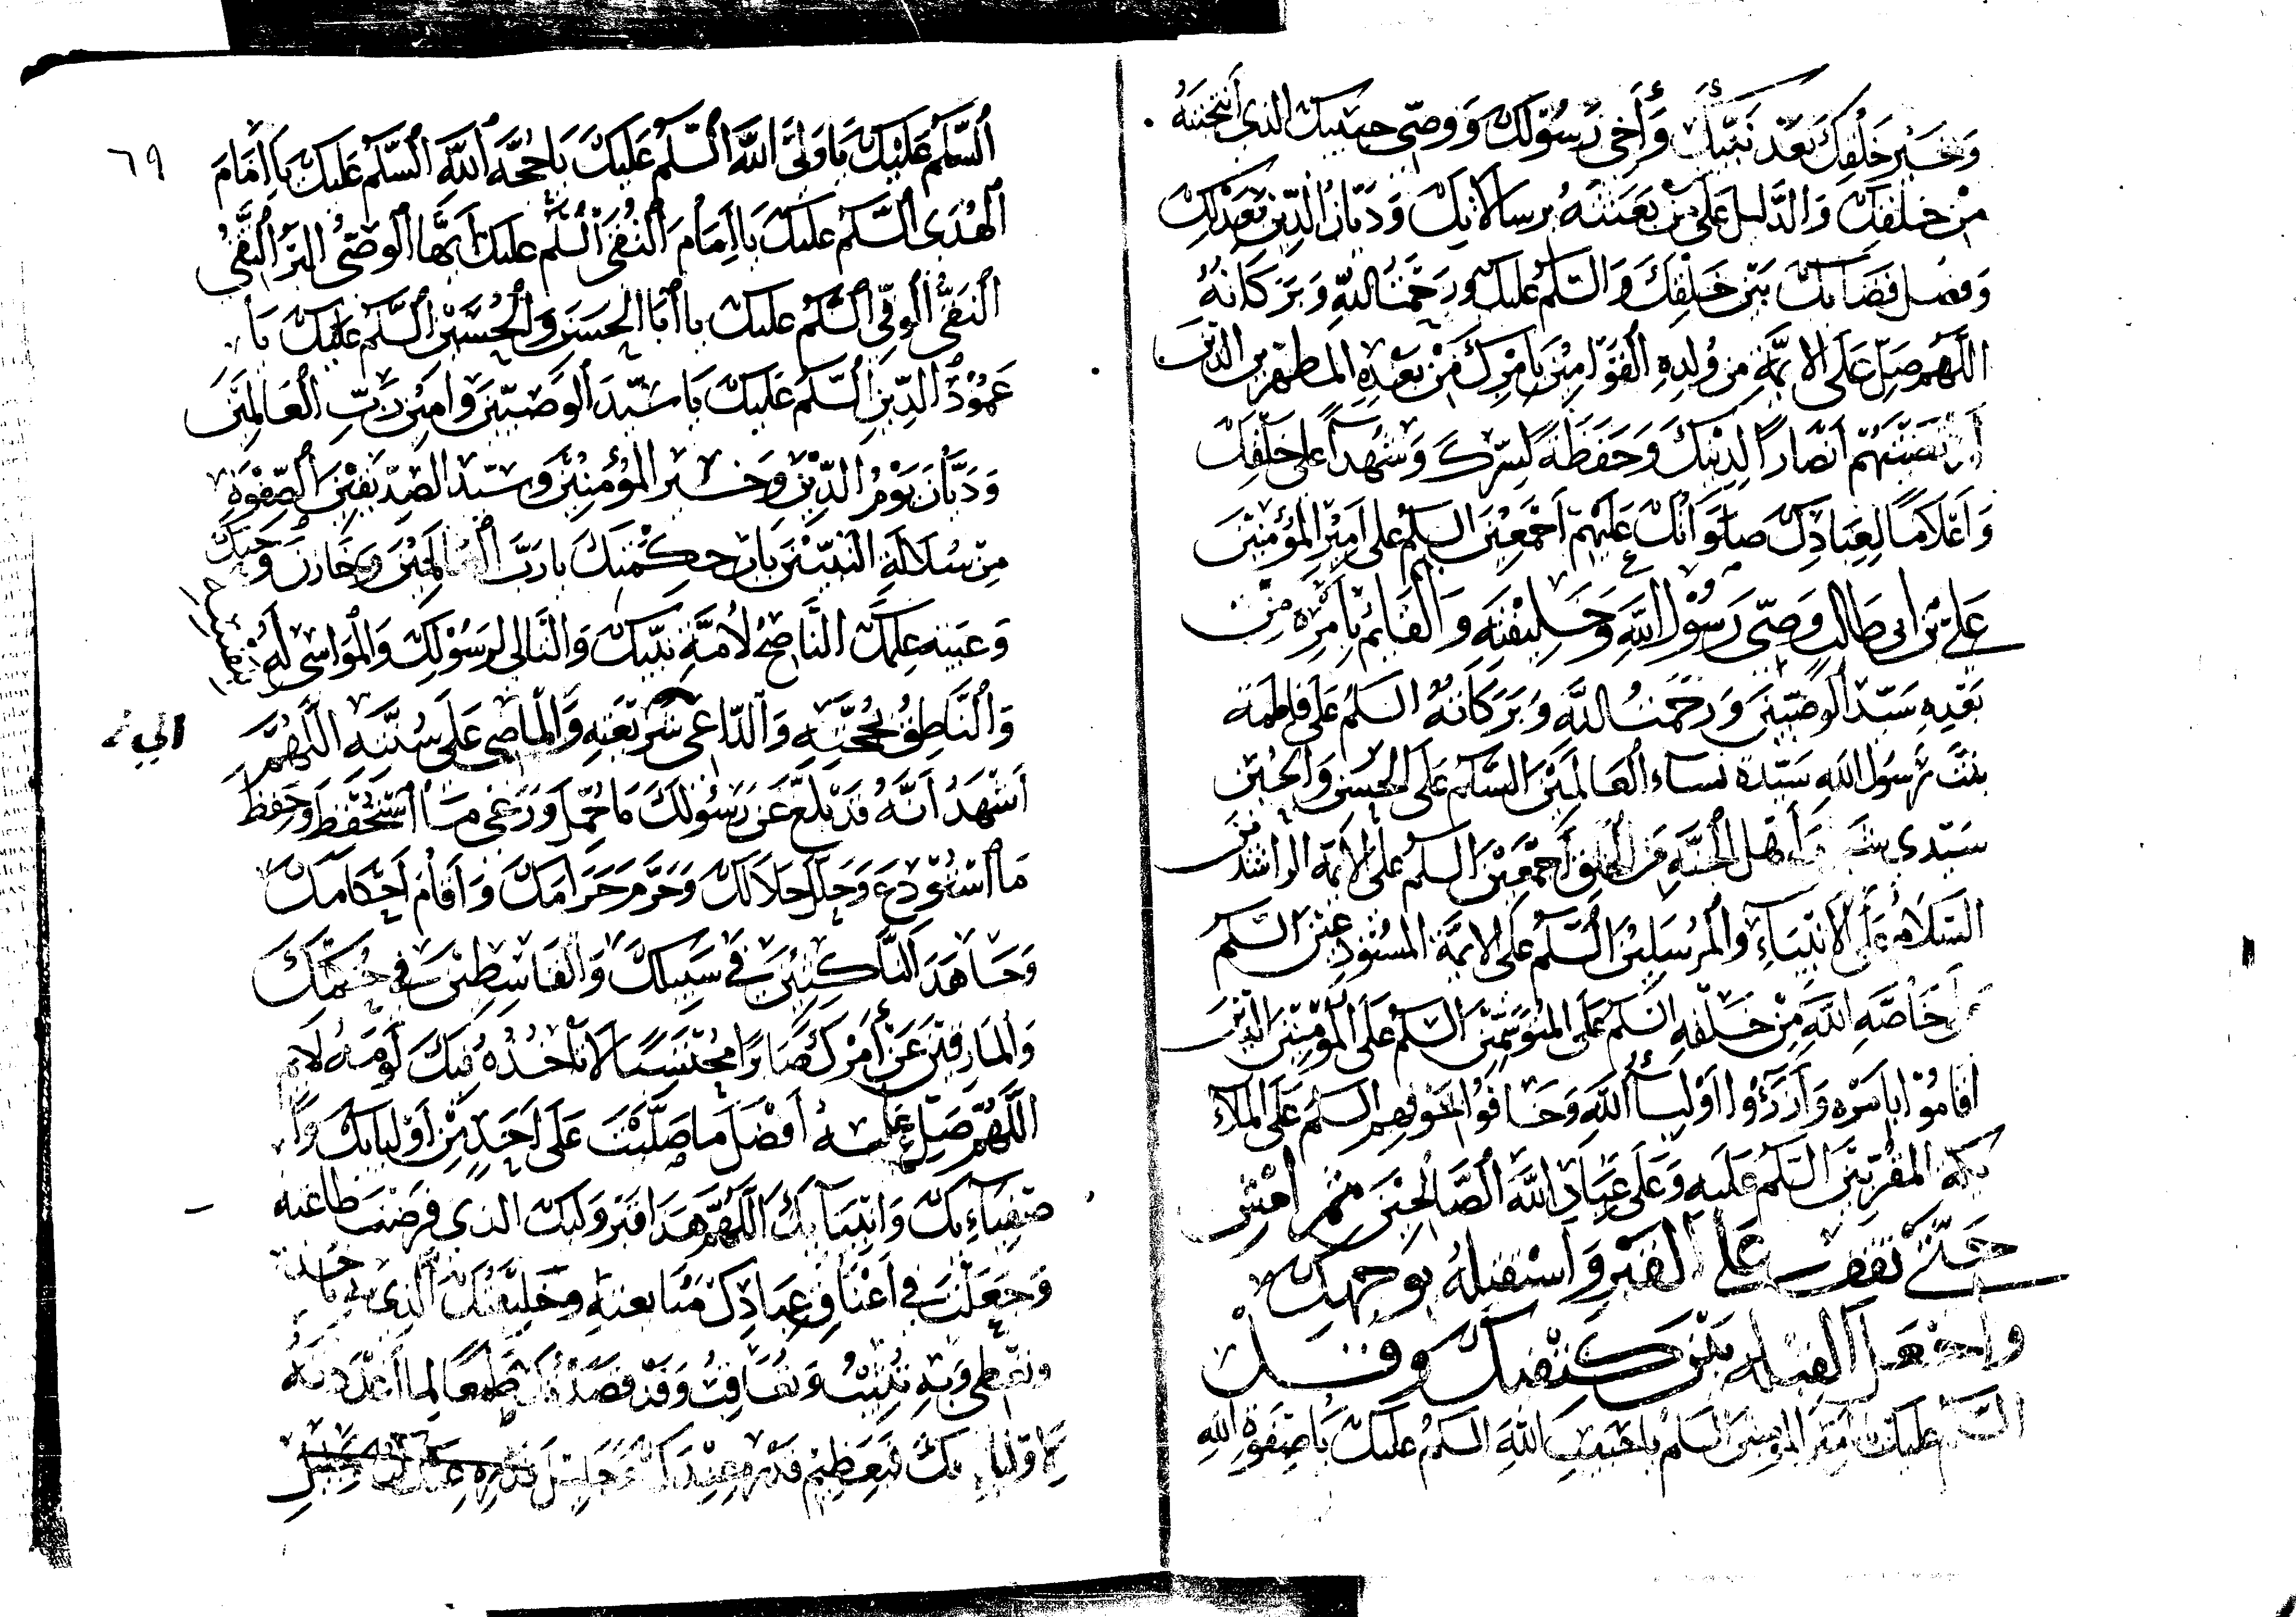 وَخَيْرِ خَلْقِكَ بَعْدَ نَبِيِّكَ وَأَخِي رَسُوْلِكَ وَوَصِيِّ حَبِيبِكَ الذي انتجبته
مِنْ خلقك وَالدَّلِيلِ عَلَى مَنْ بَعَثْتَهُ برسالاتك وَدَيَّانِ الدِّينِ بِعَدْلِكَ
وَفصل قضائك بَيْنَ خَلْقِكَ وَالسّلمُ عليه وَرَحْمَتُ اللهِ وَبَرَكَاتُهُ
اللّهُمّ صَلِّ عَلَى الائمَّةِ من وُلدِهِ القَوّامِيْنَ بِامْرِكَ مِنْ بَعْدِهِ المطهرين الذين
ارتَضَيْتَهُمْ انْصَارًا لِدِيْنِكَ وَحَفَظَةً لسِرِّكَ وَشُهَدَآءَ على خَلْقِكَ
وَاَعْلَامًا لِعِبَادِكَ صلَوَاتُكَ عَلَيْهِمْ اَجْمَعِيْنَ السلمُ على اَمِيْرِ المُؤْمِنِيْنَ
عَلِي بْنِ ابي طالب وَصِيّ رَسُوْلِ اللهِ وَخَلِيْفَتِهِ وَالْقَائِمِ بِاَمْرِه مِنْ
بَعْدِهِ سَيّد الوَصِيّيْنَ وَرَحْمَتُ اللهِ وَبَرَكَاتُهُ السلمُ عَلَى فَاطِمَةَ
بِنْتِ رَسُولِ اللهِ سَيّدَة نساء الْعَالَمِيْنَ السّلمُ عَلَى الْحَسَنِ وَالْحُسَيْنِ
سَيّدي شباب أهْل الْجَنَّةِ مِنَ الْخَلْقِ أَجْمَعِيْنَ السلمُ عَلَى الأئمة الراشدين
السَّلَامُ عَلَى الأَنْبِيَاءِ وَالْمُرْسَلِيْنَ السَّلمُ عَلَى الائمَّة المُسْتَوْدَعِيْنَ السَّلمُ
على خَاصَّةِ اللهِ مِنْ خَلْقِهِ السّلمُ عَلَى المتوسِّمِيْنَ السّلمُ عَلَى الْمُؤْمِنِيْنَ الذين
اقَامُوْا باَمْرِه وَازَرُوْا اَوْلِيَاءَ اللهِ وَخَافُوْا لخوفهم السلمُ عَلَى الملاء
ئكة المقَرّبِيْنَ السّلمُ عَلَيه وَعَلَى عِبَادِ اللهِ الصَّالِحِيْنَ ثم امش
حَتّى تقف على القبر وَاسْتقبله بوجهك
واجْعَل القبله بَيْنَ كتفيك وقل
السَّلمُ عليك امير المومنين السلمُ يا حبيب الله السلمُ عليك يا صفوة الله
٦٩
اَلسَّلمُ عَلَيْكَ يَا وَلِيَّ اللهِ السَّلمُ عَلَيْكَ يَا حُجَّةَ اللهِ السَّلمُ عَلَيك يَا اِمَامَ
الْهُدَى السَّلمُ عليك يَا اِمَامَ التُّقَى السَّلمُ عليك اَيُّهَا الوَصِيُّ البَرُّ التَّقِيُّ
النَّقِيُّ الوَفِيُّ السَّلمُ عليك يا اَبَا الحسَنِ وَالْحُسَيْنِ السَّلمُ عَلَيك يَا
عَمُوْدَ الدِّيْنِ السّلمُ عَلَيكَ يَا سَيّدَ الوَصِيّيْنَ وَاَمِيْنَ رَبّ العَالَمِيْنَ
وَدَيَّانَ يَوْمِ الدِّيْنِ وَخيْرَ المُؤْمِنِيْنَ وَسَيّدَ الصِّدّيْقِيْنَ الصَّفْوَةِ
مِنْ سُلَالَةِ النَّبِيّيْنَ بابَ حِكْمَتِكَ يا رَبَّ العَالَمِيْنَ وَخَازِنَ وَحْيِكَ
وَعَيْبَةِ عِلْمِكَ النَّاصِحِ لأُمَّةِ نَبِيّكَ وَالتَّالي لِرَسُوْلِكَ وَالمُوَاسِي لَهُ بنفسه
وَالنَّاطِقُ بِحُجَّتِهِ وَالدَّاعِي شَرِيعَتِهِ وَالْمَاضِي عَلَى سُنَّتِهِ اللَّهُمَّ
الي
اَشْهَدُ اَنَّهُ قَد بَلَّغَ عَنْ رَسُوْلِكَ مَا حُمِّلَ وَرَعَى مَا اسْتُحْفِظَ وَحَفِظَ
مَا اسْتُوْدِعَ وَحَلَّلَ حَلَالَكَ وَحَرَّمَ حَرَامَكَ وَاَقَامَ اَحْكَامَكَ
وَجَاهَدَ النَّاكِثِيْنَ في سَبِيلِكَ وَالْقَاسِطِيْنَ في حُكْمِكَ
وَالْمَارِقِيْنَ عَنْ أَمْرِكَ صَابِرًا مُحْتَسِبًا لَا تَأْخُذُهُ فِيكَ لَوْمَةُ لَائم
اللَّهُمَّ صَلّ عليه اَفْضَلَ مَا صَلَّيْتَ عَلَى اَحَدٍ مِنْ اَوْلِيَائِكَ وَا
صْفِيَاءِكَ وَانْبِيَآئِكَ اَللّهُمَّ هَذَا قَبْرُ وَلِيّكَ الذي فَرَضْتَ طَاعَتَهُ
وَجَعَلْتَ في اَعْنَاقِ عِبَادِكَ مُتَابَعَتَهِ وَخَلِيْفَتكَ الَّذي به تاخذ
وَتُعْطِي وَبِهِ تُثِيْبُ وَتُعَاقِبُ وَقَدْ قَصَدْتُكَ طَمَعًا لِمَا اَعْدَدْتَهُ
لاَوْلِيَائِكَ فَبعَظِيْمِ قَدْرِه عِنْدَكَ وَجَلِيْل قَدْرِهِ